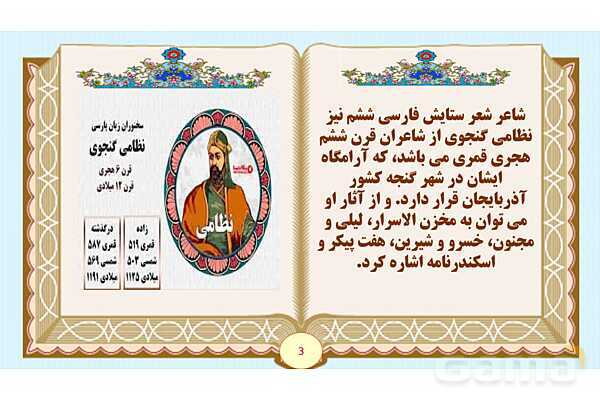 شاعر شعر ستایش فارسی ششم نیز
نظامی گنجوی از شاعران قرن ششم
هجری قمری می باشد، که آرامگاه
ایشان در شهر گنجه کشور
آذربایجان قرار دارد. و از آثار او
می توان به مخزن الاسرار، لیلی و
مجنون، خسرو و شیرین، هفت پیکر و
اسکندرنامه اشاره کرد.
سخنوران زبان پارسی
نظامی گنجوی
قرن ۶ هجری
قرن ۱۲ میلادی
نظامی
زاده
قمری ۵۱۹
شمسی ۵۰۳
میلادی ۱۱۲۵
درگذشته
قمری ۵۸۷
شمسی ۵۶۹
میلادی ۱۱۹۱
3
Gama